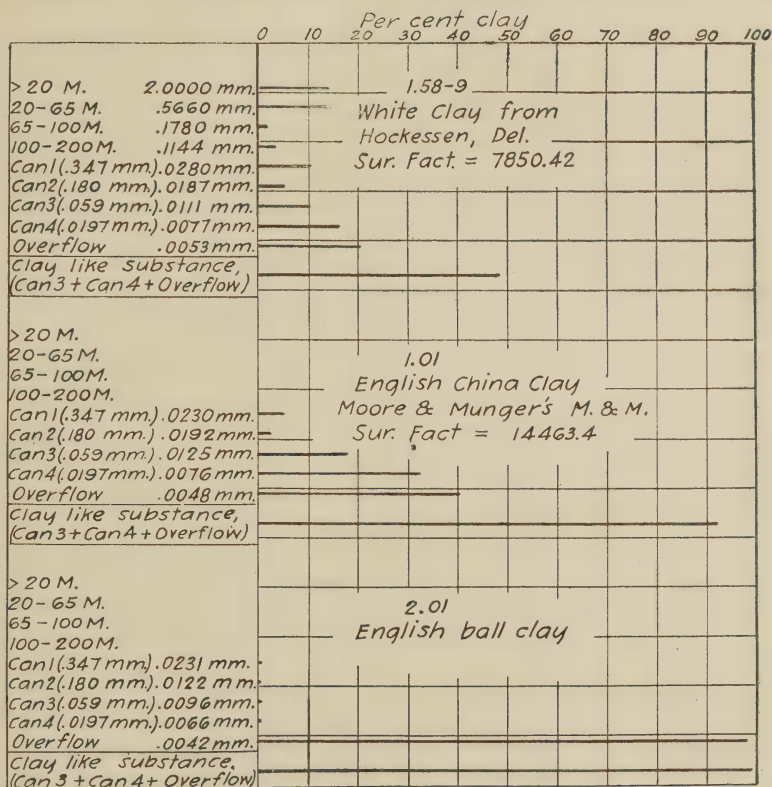 Per cent clay
0 10 20 30 40 50 60 70 80 90 100
>20 M. 2.0000 mm.
20-65 M. .5660 mm.
65-100 M. .1780 mm.
100-200 M. .1144 mm.
Can1(.347 mm.).0280 mm.
Can2(.180 mm.).0187 mm.
Can3(.059 mm.).0111 mm.
Can4(.0197 mm.).0077 mm.
Overflow .0053 mm.
Clay like substance,
(Can 3 + Can 4 + Overflow)
1.58-9
White Clay from
Hockessen, Del.
Sur. Fact. = 7850.42
>20 M.
20-65 M.
65-100 M.
100-200 M.
Can1(.347 mm.).0230 mm.
Can2(.180 mm.).0192 mm.
Can3(.059 mm.).0125 mm.
Can4(.0197 mm.).0076 mm.
Overflow .0048 mm.
Clay like substance,
(Can 3 + Can 4 + Overflow)
1.01
English China Clay
Moore & Munger's M. & M.
Sur. Fact = 14463.4
>20 M.
20-65 M.
65-100 M.
100-200 M.
Can1(.347 mm.).0231 mm.
Can2(.180 mm.).0122 mm.
Can3(.059 mm.).0096 mm.
Can4(.0197 mm.).0066 mm.
Overflow .0042 mm.
Clay like substance,
(Can 3 + Can 4 + Overflow)
2.01
English ball clay